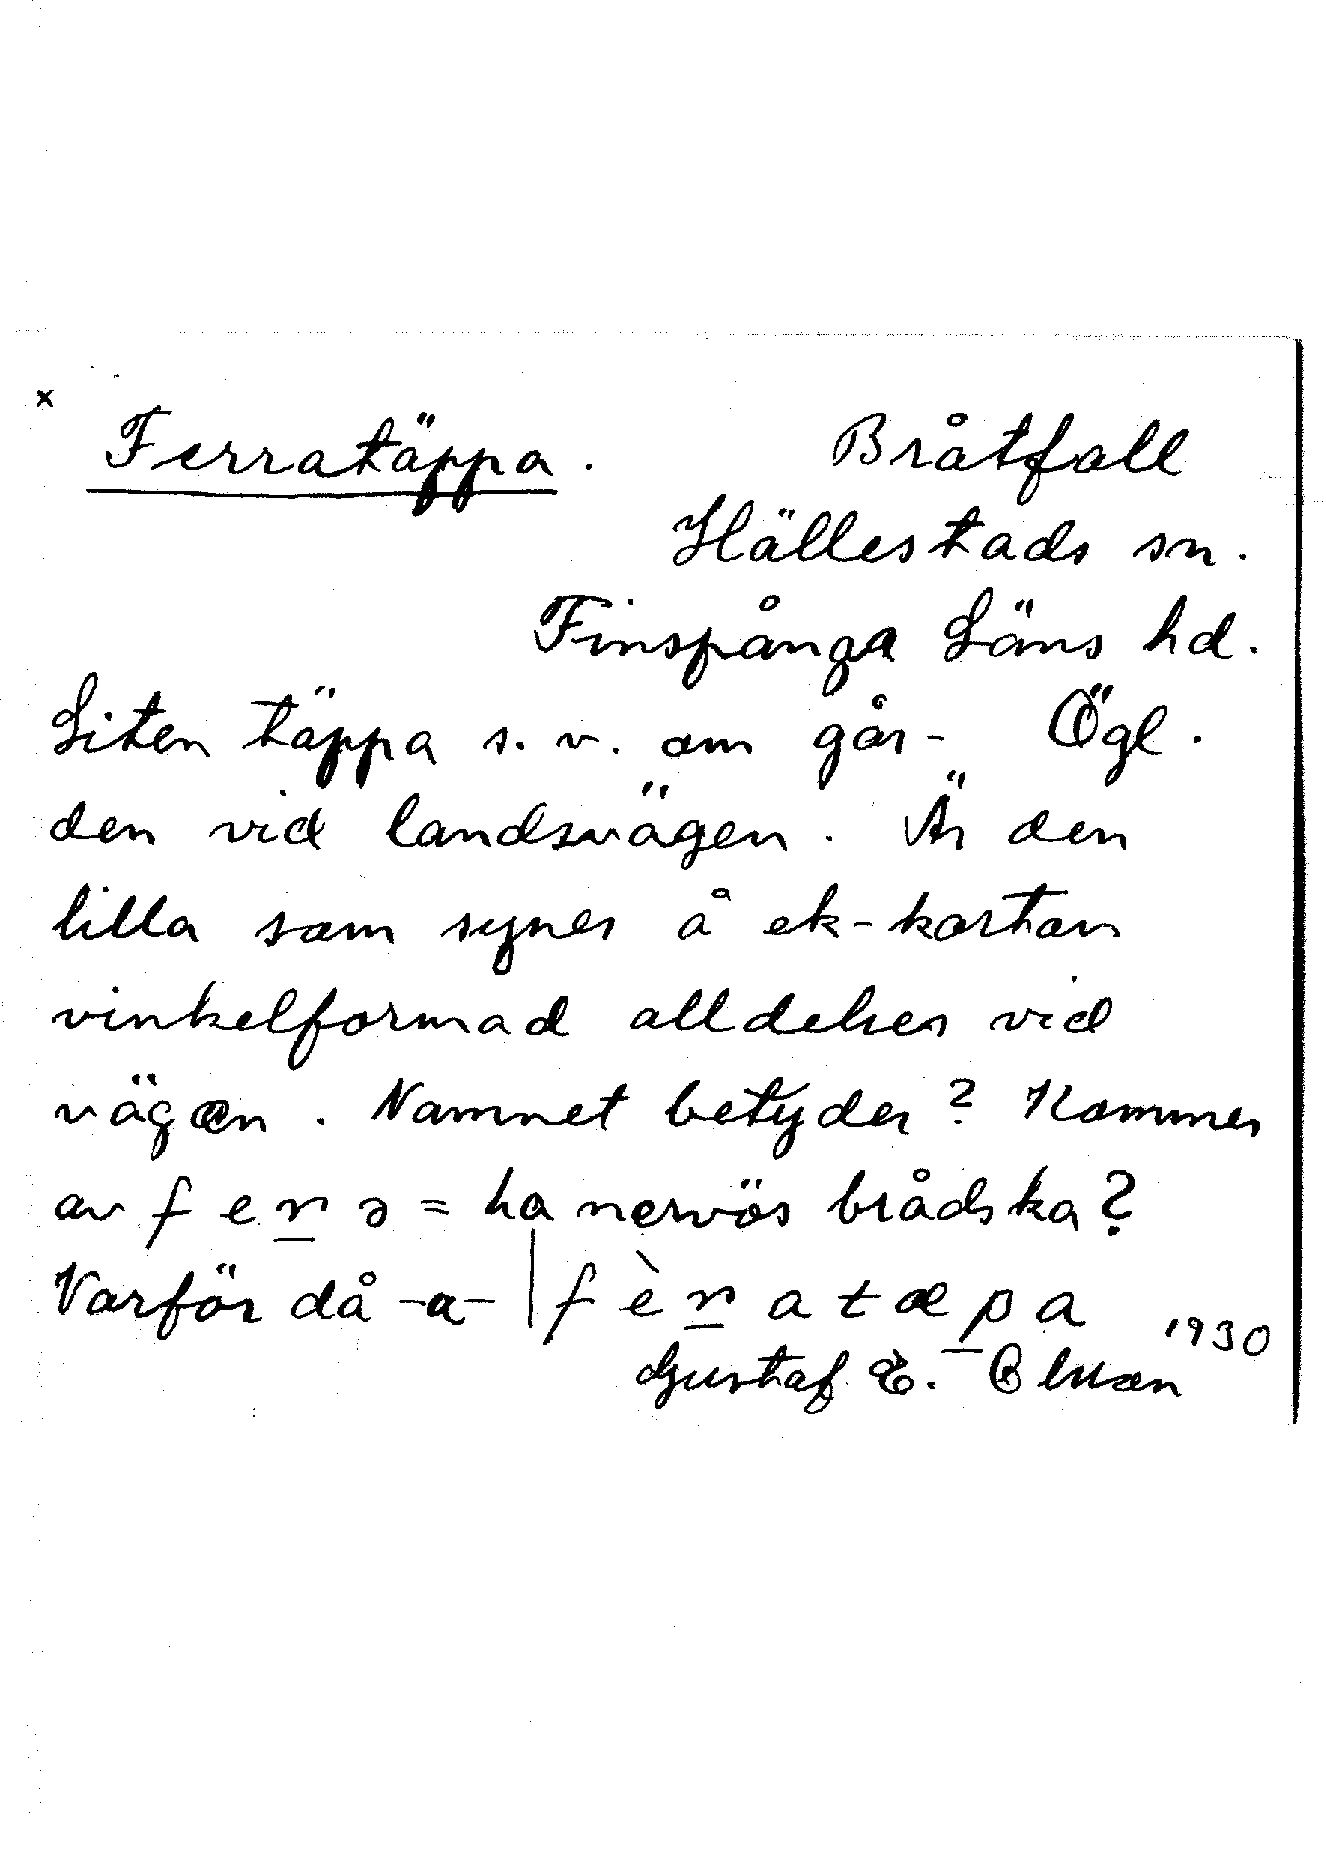 x
Ferratäppa. Bråtfall
Hällestads sn.
Finspånga Läns hd.
Liten täppa s. v. om går- Ögl.
den vid landsvägen. Är den
lilla som synes å ek-kartan
vinkelformad alldeles vid
vägen. Namnet betyder? Kommer
av f e r̲ ə = ha nervös brådska?
Varför då -a- | f è r̲ a t æ p̲ a 1930
Gustaf E.